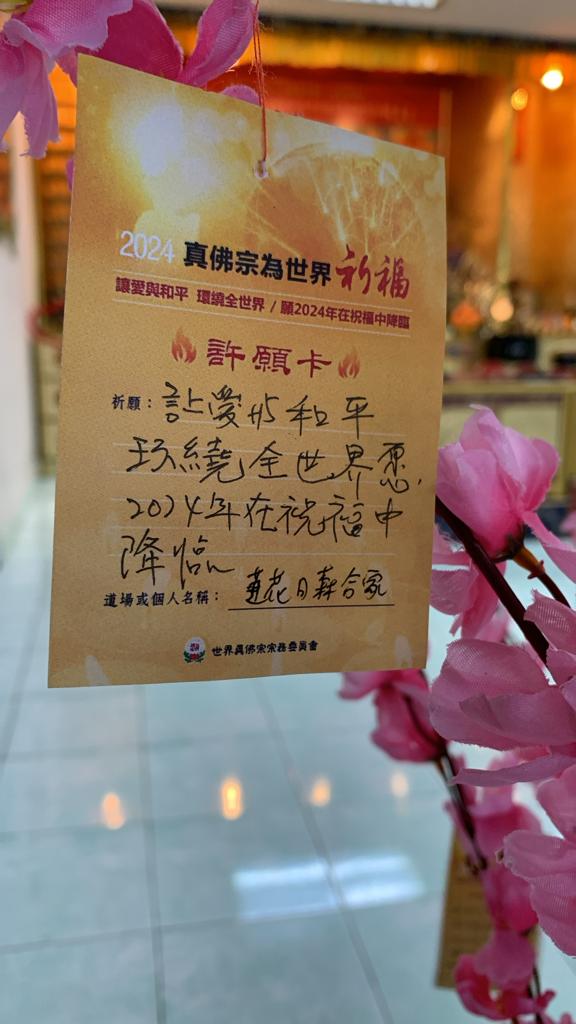 2024 真佛宗為世界祈福
讓愛與和平 環繞全世界 / 願2024年在祝福中降臨
許願卡
祈願：让愛与和平
环繞全世界愿
2024年在祝福中
降临
道場或個人名稱：蓮花日森合家
世界真佛宗宗務委員會